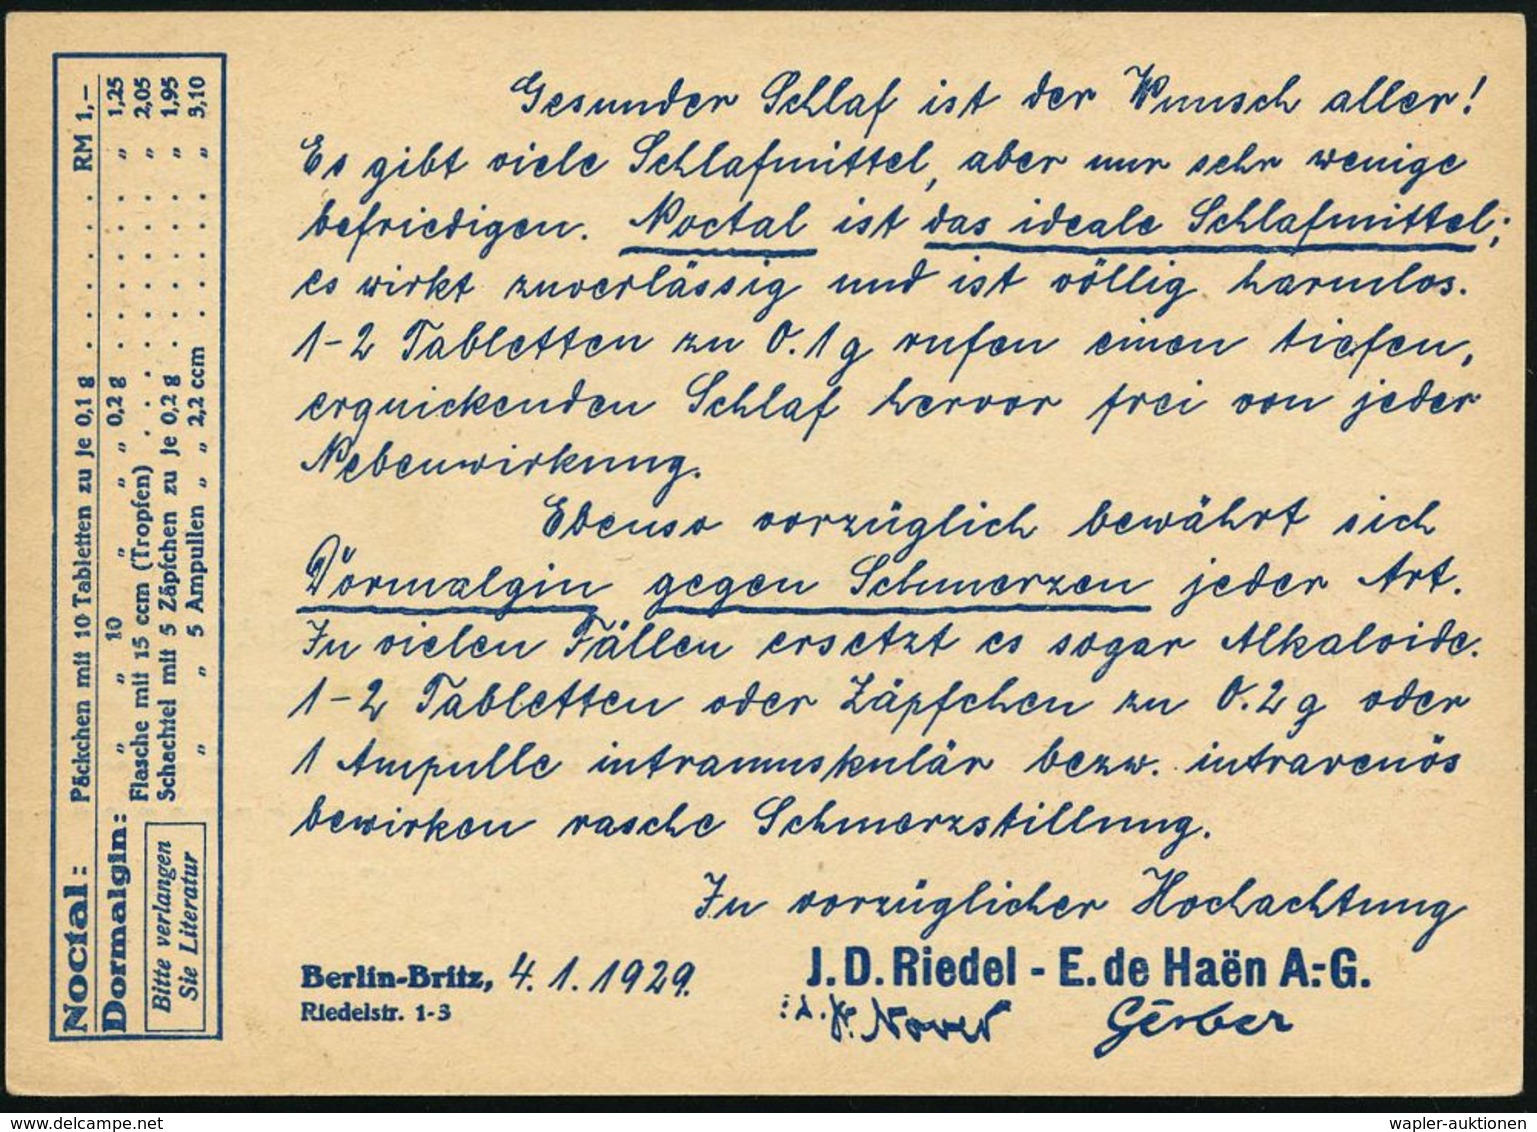 Noctal: Päckchen mit 10 Tabletten zu je 0,1 g . . . . . . RM 1,—
Dormalgin: „ „ 10 „ „ „ 0,2 g . . . . . . „ 1,25
Flasche mit 15 ccm (Tropfen) . . . . . . . . „ 2,05
Schachtel mit 5 Zäpfchen zu je 0,2 g . . . . . . „ 1,95
„ „ 5 Ampullen „ „ 2,2 ccm . . . . . „ 3,10
Bitte verlangen
Sie Literatur
Gesunder Schlaf ist der Wunsch aller!
Es gibt viele Schlafmittel, aber nur sehr wenige
befriedigen. Noctal ist das ideale Schlafmittel;
es wirkt zuverlässig und ist völlig harmlos.
1-2 Tabletten zu 0.1 g rufen einen tiefen,
erquickenden Schlaf hervor frei von jeder
Nebenwirkung.
Ebenso vorzüglich bewährt sich
Dormalgin gegen Schmerzen jeder Art.
In vielen Fällen ersetzt es sogar Alkaloide.
1-2 Tabletten oder Zäpfchen zu 0.2 g oder
1 Ampulle intramuskulär bezw. intravenös
bewirken rasche Schmerzstillung.
In vorzüglicher Hochachtung
Berlin-Britz, 4.1.1929.
Riedelstr. 1-3
J. D. Riedel - E. de Haën A.-G.
Gerber
wapler-auktionen